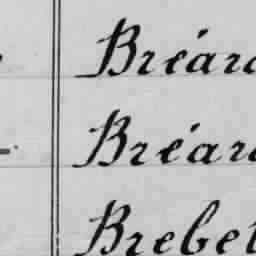 Bréard
Bréard
Brebet